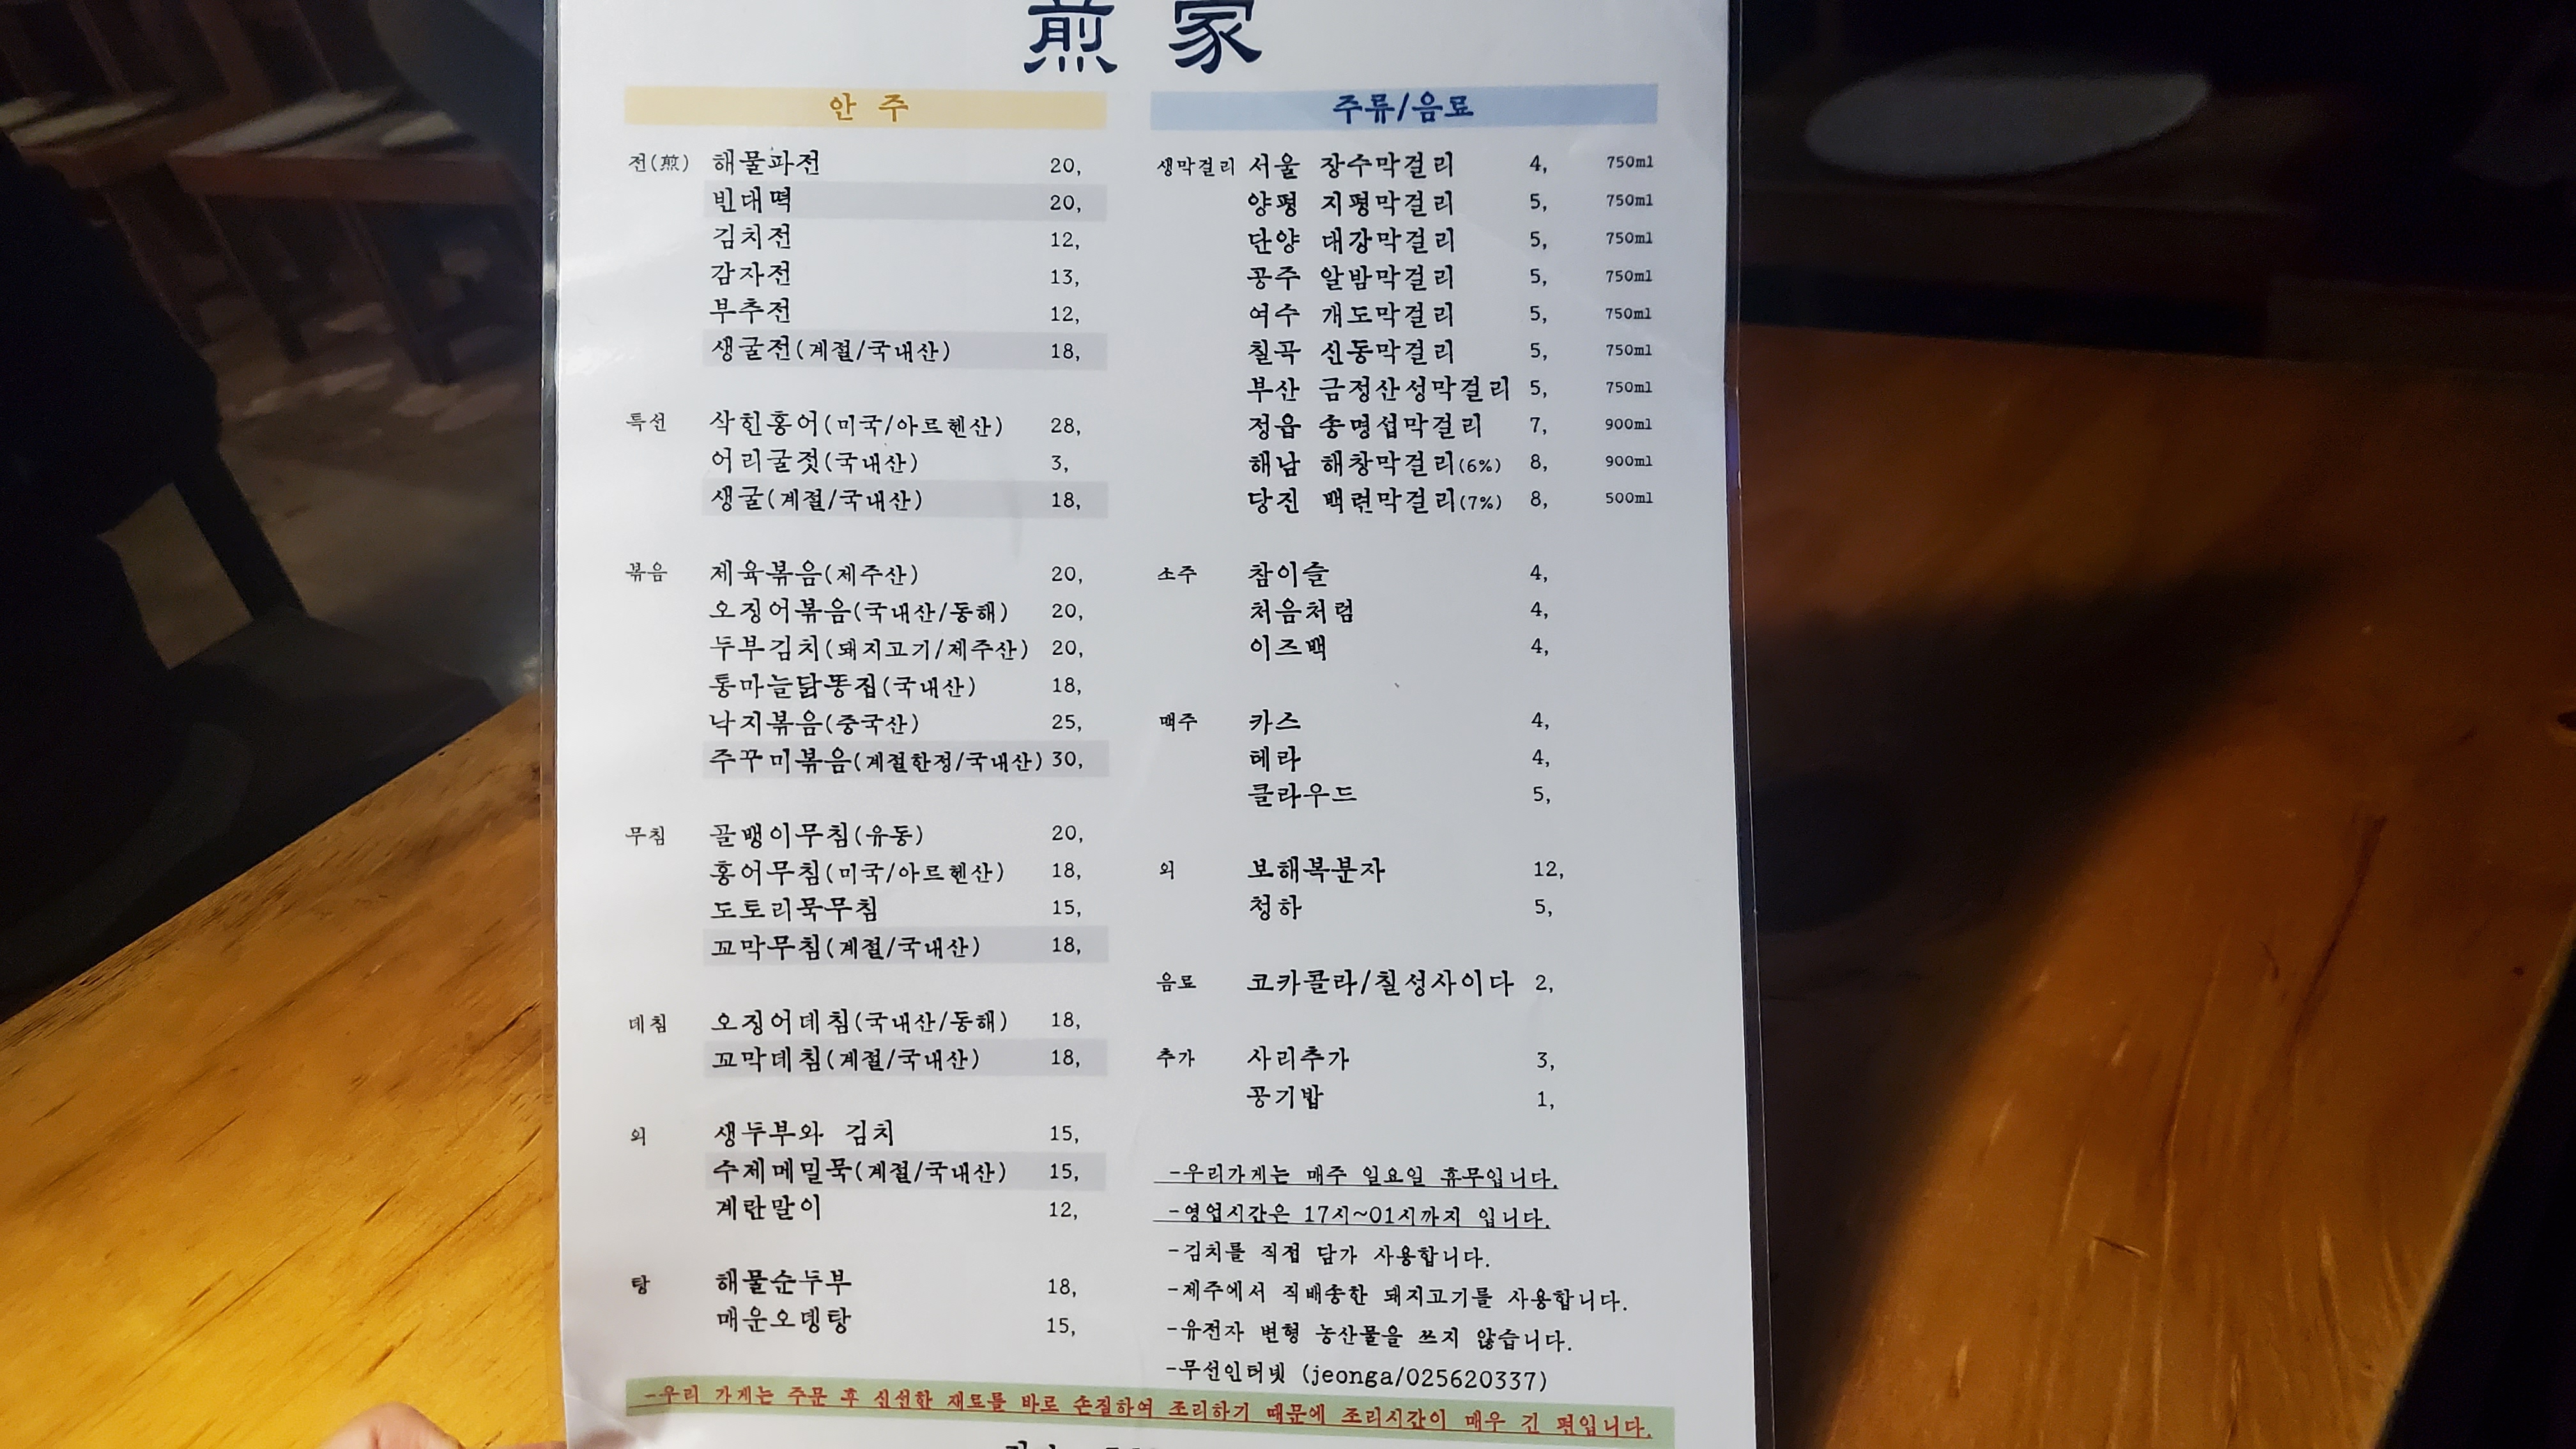 煎家
안 주
전(煎) 해물파전 20,
빈대떡 20,
김치전 12,
감자전 13,
부추전 12,
생굴전(계절/국내산) 18,
특선 삭힌홍어(미국/아르헨산) 28,
어리굴젓(국내산) 3,
생굴(계절/국내산) 18,
볶음 제육볶음(제주산) 20,
오징어볶음(국내산/동해) 20,
두부김치(돼지고기/제주산) 20,
통마늘닭똥집(국내산) 18,
낙지볶음(중국산) 25,
주꾸미볶음(계절한정/국내산) 30,
무침 골뱅이무침(유동) 20,
홍어무침(미국/아르헨산) 18,
도토리묵무침 15,
꼬막무침(계절/국내산) 18,
데침 오징어데침(국내산/동해) 18,
꼬막데침(계절/국내산) 18,
외 생두부와 김치 15,
수제메밀묵(계절/국내산) 15,
계란말이 12,
탕 해물순두부 18,
매운오뎅탕 15,
주류/음료
생막걸리 서울 장수막걸리 4, 750ml
양평 지평막걸리 5, 750ml
단양 대강막걸리 5, 750ml
공주 알밤막걸리 5, 750ml
여수 개도막걸리 5, 750ml
칠곡 신동막걸리 5, 750ml
부산 금정산성막걸리 5, 750ml
정읍 송명섭막걸리 7, 900ml
해남 해창막걸리(6%) 8, 900ml
당진 백련막걸리(7%) 8, 500ml
소주 참이슬 4,
처음처럼 4,
이즈백 4,
맥주 카스 4,
테라 4,
클라우드 5,
외 보해복분자 12,
청하 5,
음료 코카콜라/칠성사이다 2,
추가 사리추가 3,
공기밥 1,
-우리가게는 매주 일요일 휴무입니다.
-영업시간은 17시~01시까지 입니다.
-김치를 직접 담가 사용합니다.
-제주에서 직배송한 돼지고기를 사용합니다.
-유전자 변형 농산물을 쓰지 않습니다.
-무선인터넷 (jeonga/025620337)
-우리 가게는 주문 후 신선한 재료를 바로 손질하여 조리하기 때문에 조리시간이 매우 긴 편입니다.